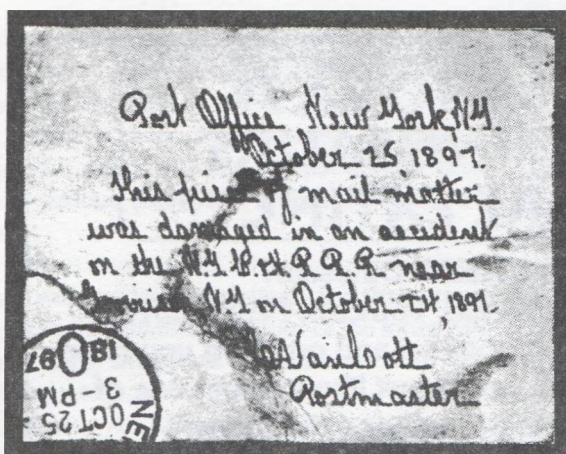 Post Office New York, N.Y.
October 25 1897.
This piece of mail matter
was damaged in an accident
on the N.Y.C. & H. R. R. R. near
Garrison, N.Y. on October 24, 1897.
Van Cott
Postmaster
NE
OCT 25
3 - PM
1897